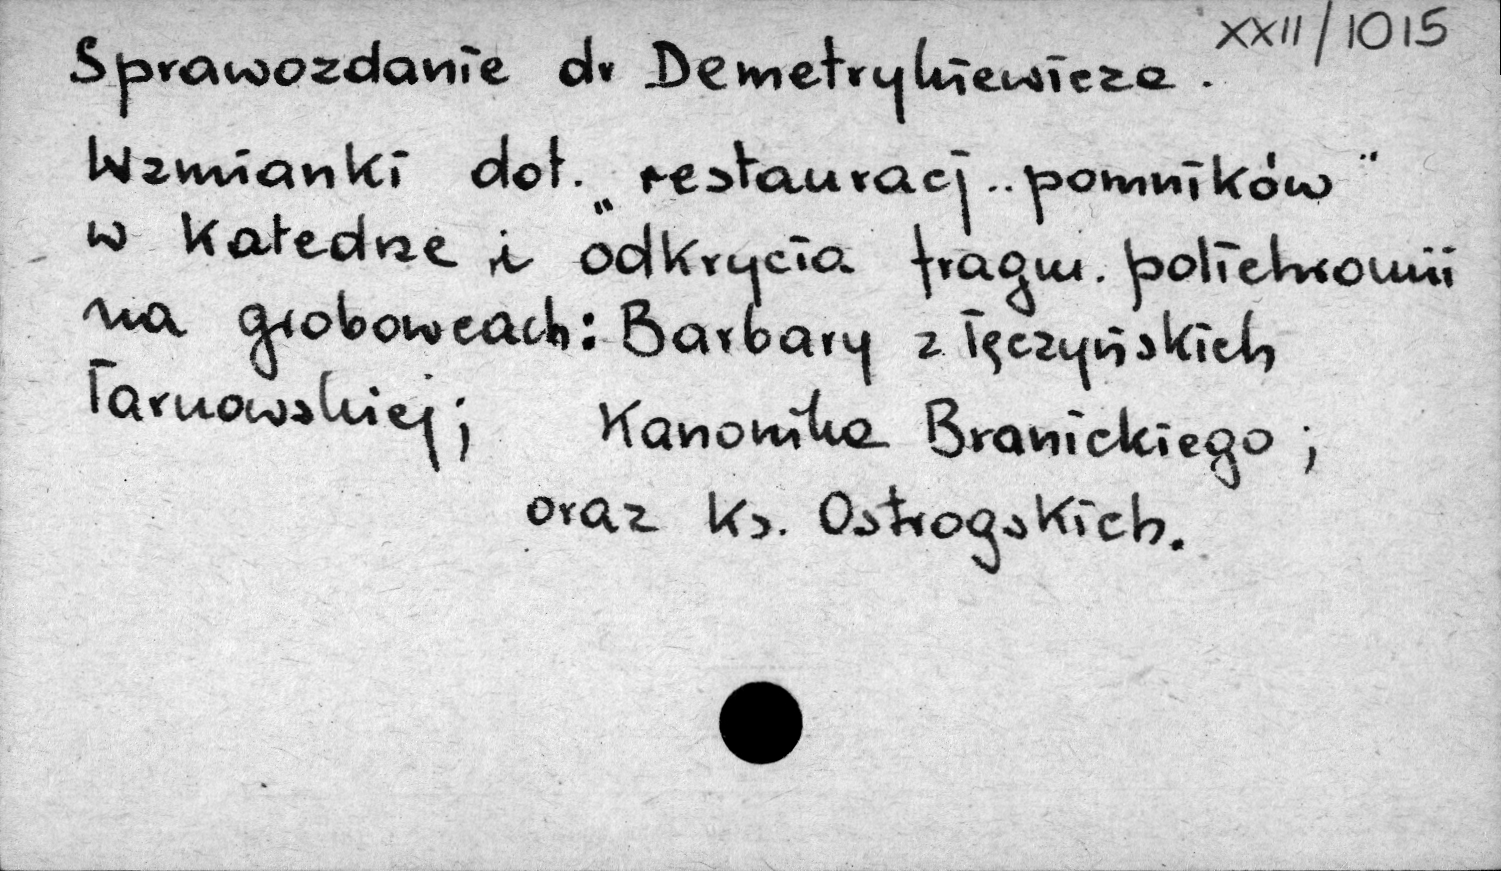 XXII/1015
Sprawozdanie dr Demetrykiewicza.
Wzmianki dot. „restauracj.. pomników"
w Katedrze i odkrycia fragm. polichromii
na grobowcach: Barbary z Tęczyńskich
Tarnowskiej; Kanonika Branickiego;
oraz ks. Ostrogskich.